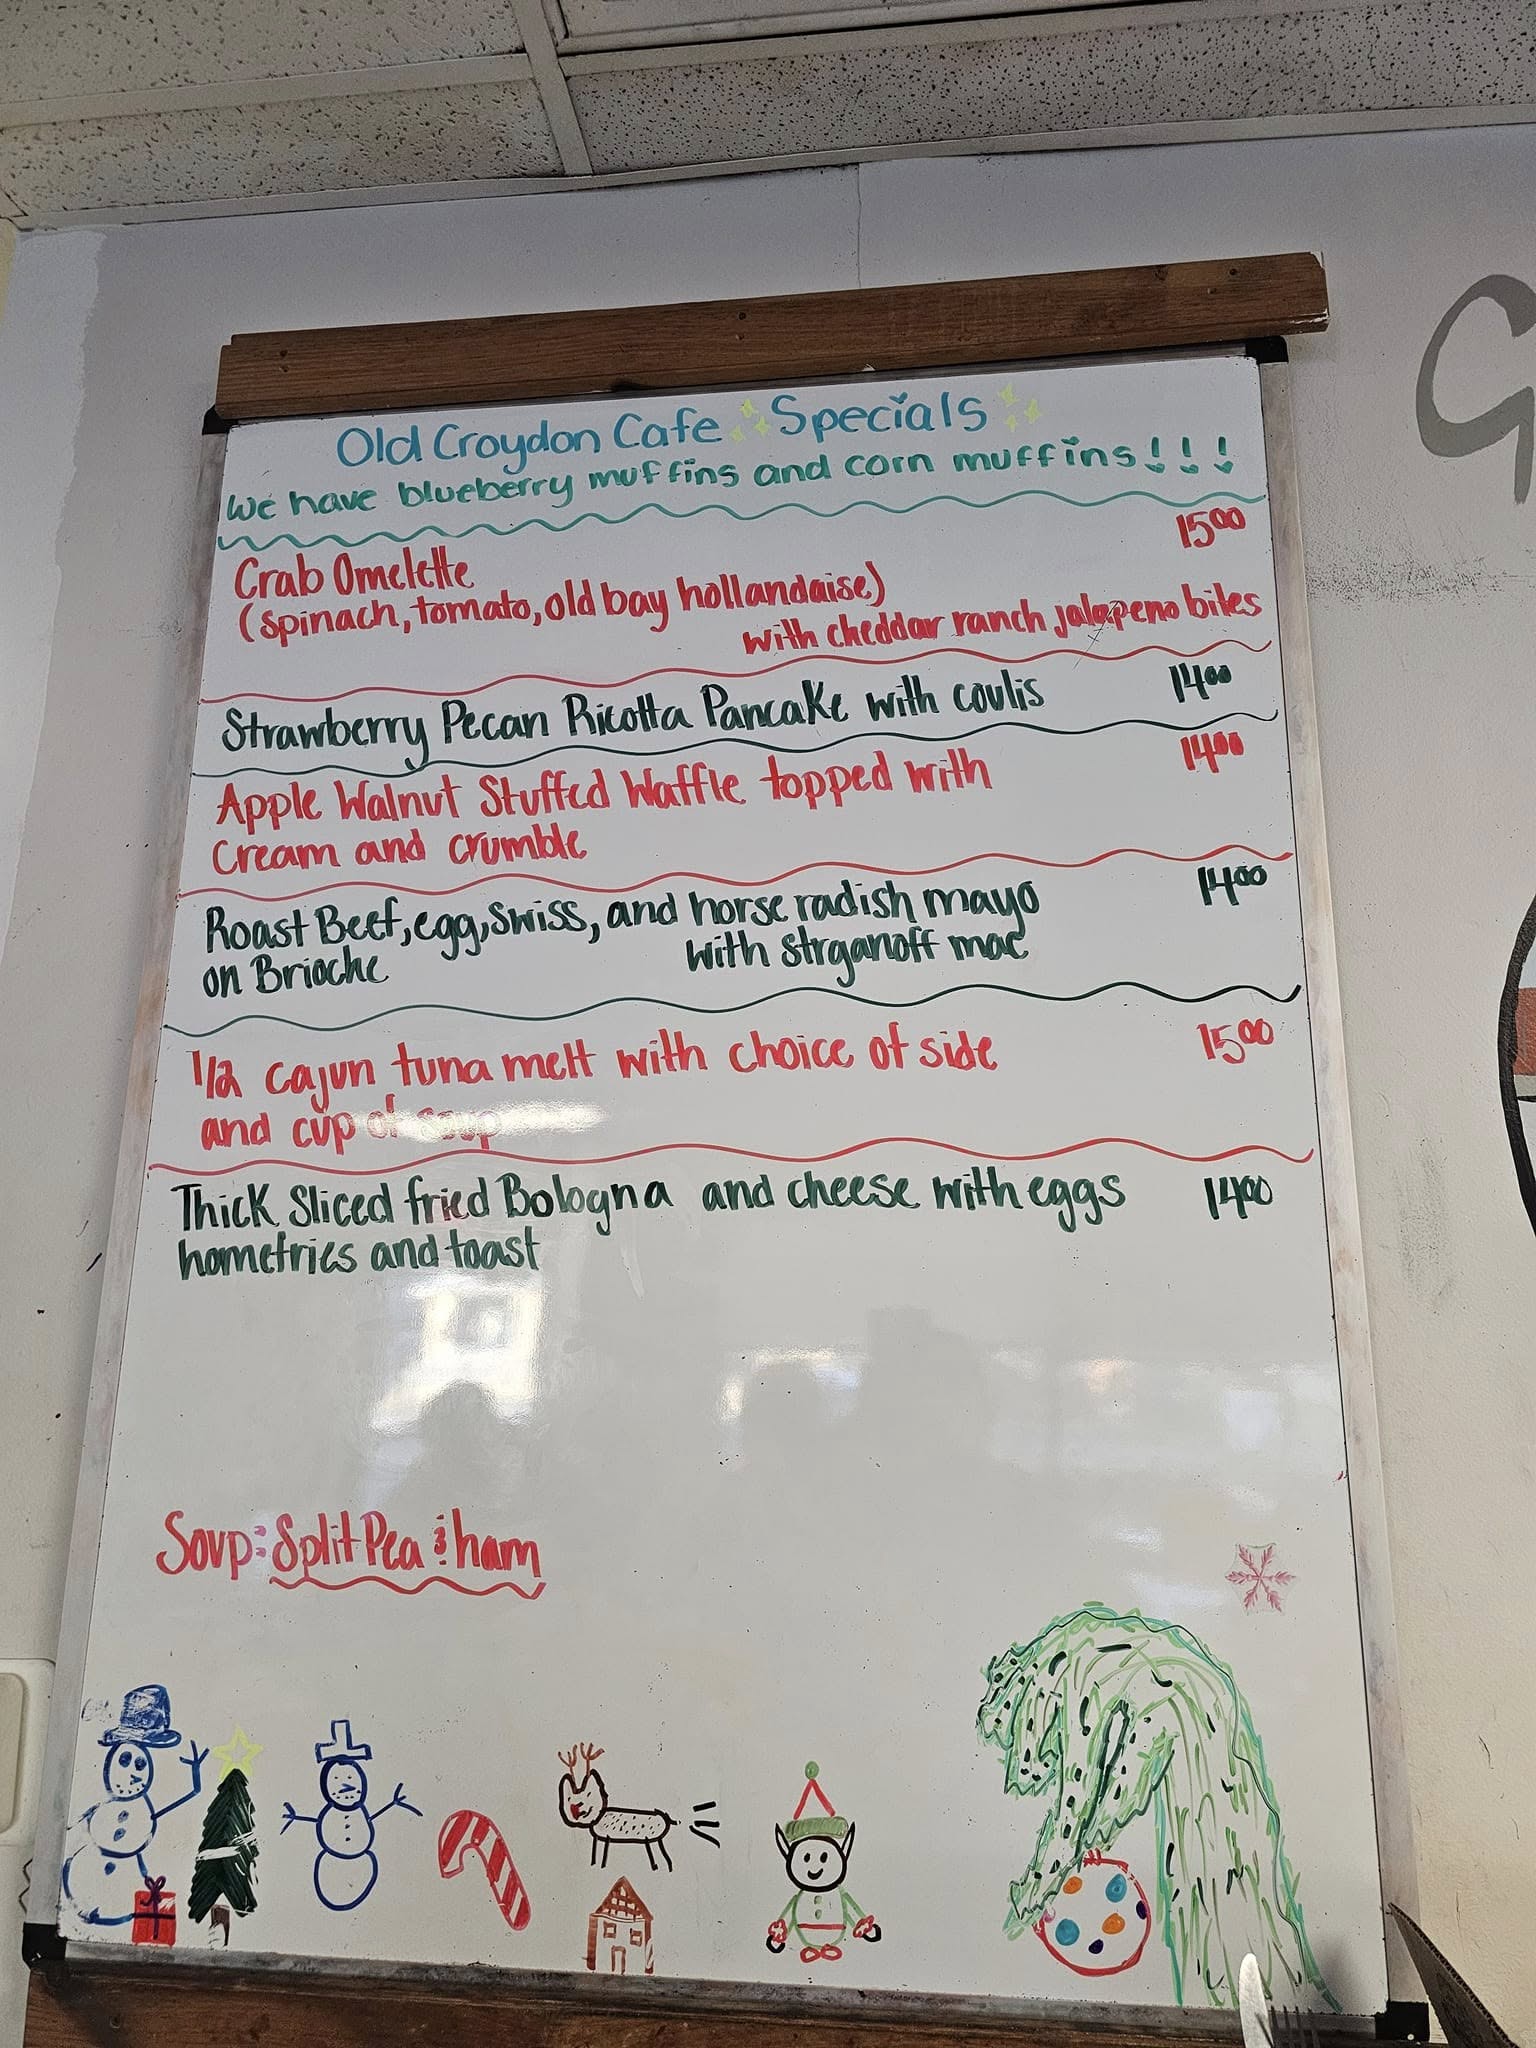 Old Croydon Cafe Specials
We have blueberry muffins and corn muffins!!!
Crab Omelette 15.00
(spinach, tomato, old bay hollandaise)
with cheddar ranch jalapeno bites
Strawberry Pecan Ricotta Pancake with coulis 14.00
Apple Walnut Stuffed Waffle topped with 14.00
Cream and crumble
Roast Beef, egg, Swiss, and horse radish mayo 14.00
on Brioche with strganoff mac
1/2 cajun tuna melt with choice of side 15.00
and cup of soup
Thick Sliced fried Bologna and cheese with eggs 14.00
homefries and toast
Soup: Split Pea & ham